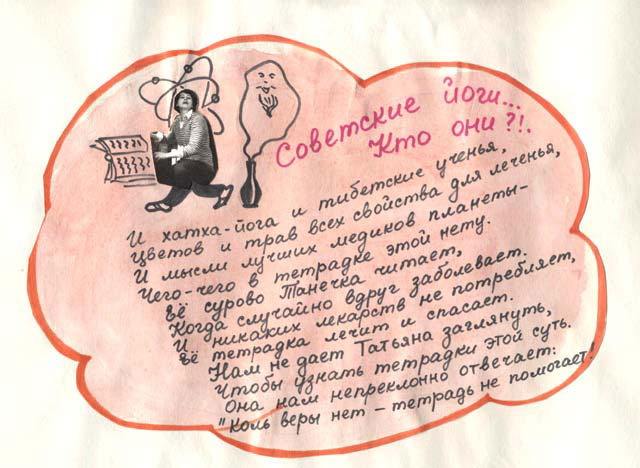 Советские йоги...
Кто они?!.
И хатха-йога и тибетские ученья,
Цветов и трав всех свойства для леченья,
И мысли лучших медиков планеты-
Чего-чего в тетрадке этой нету.
Её сурово Танечка читает,
Когда случайно вдруг заболевает.
И никаких лекарств не потребляет,
Её тетрадка лечит и спасает.
Нам не дает Татьяна заглянуть,
Чтобы узнать тетрадки этой суть.
Она нам непреклонно отвечает:
"Коль веры нет - тетрадь не помогает!